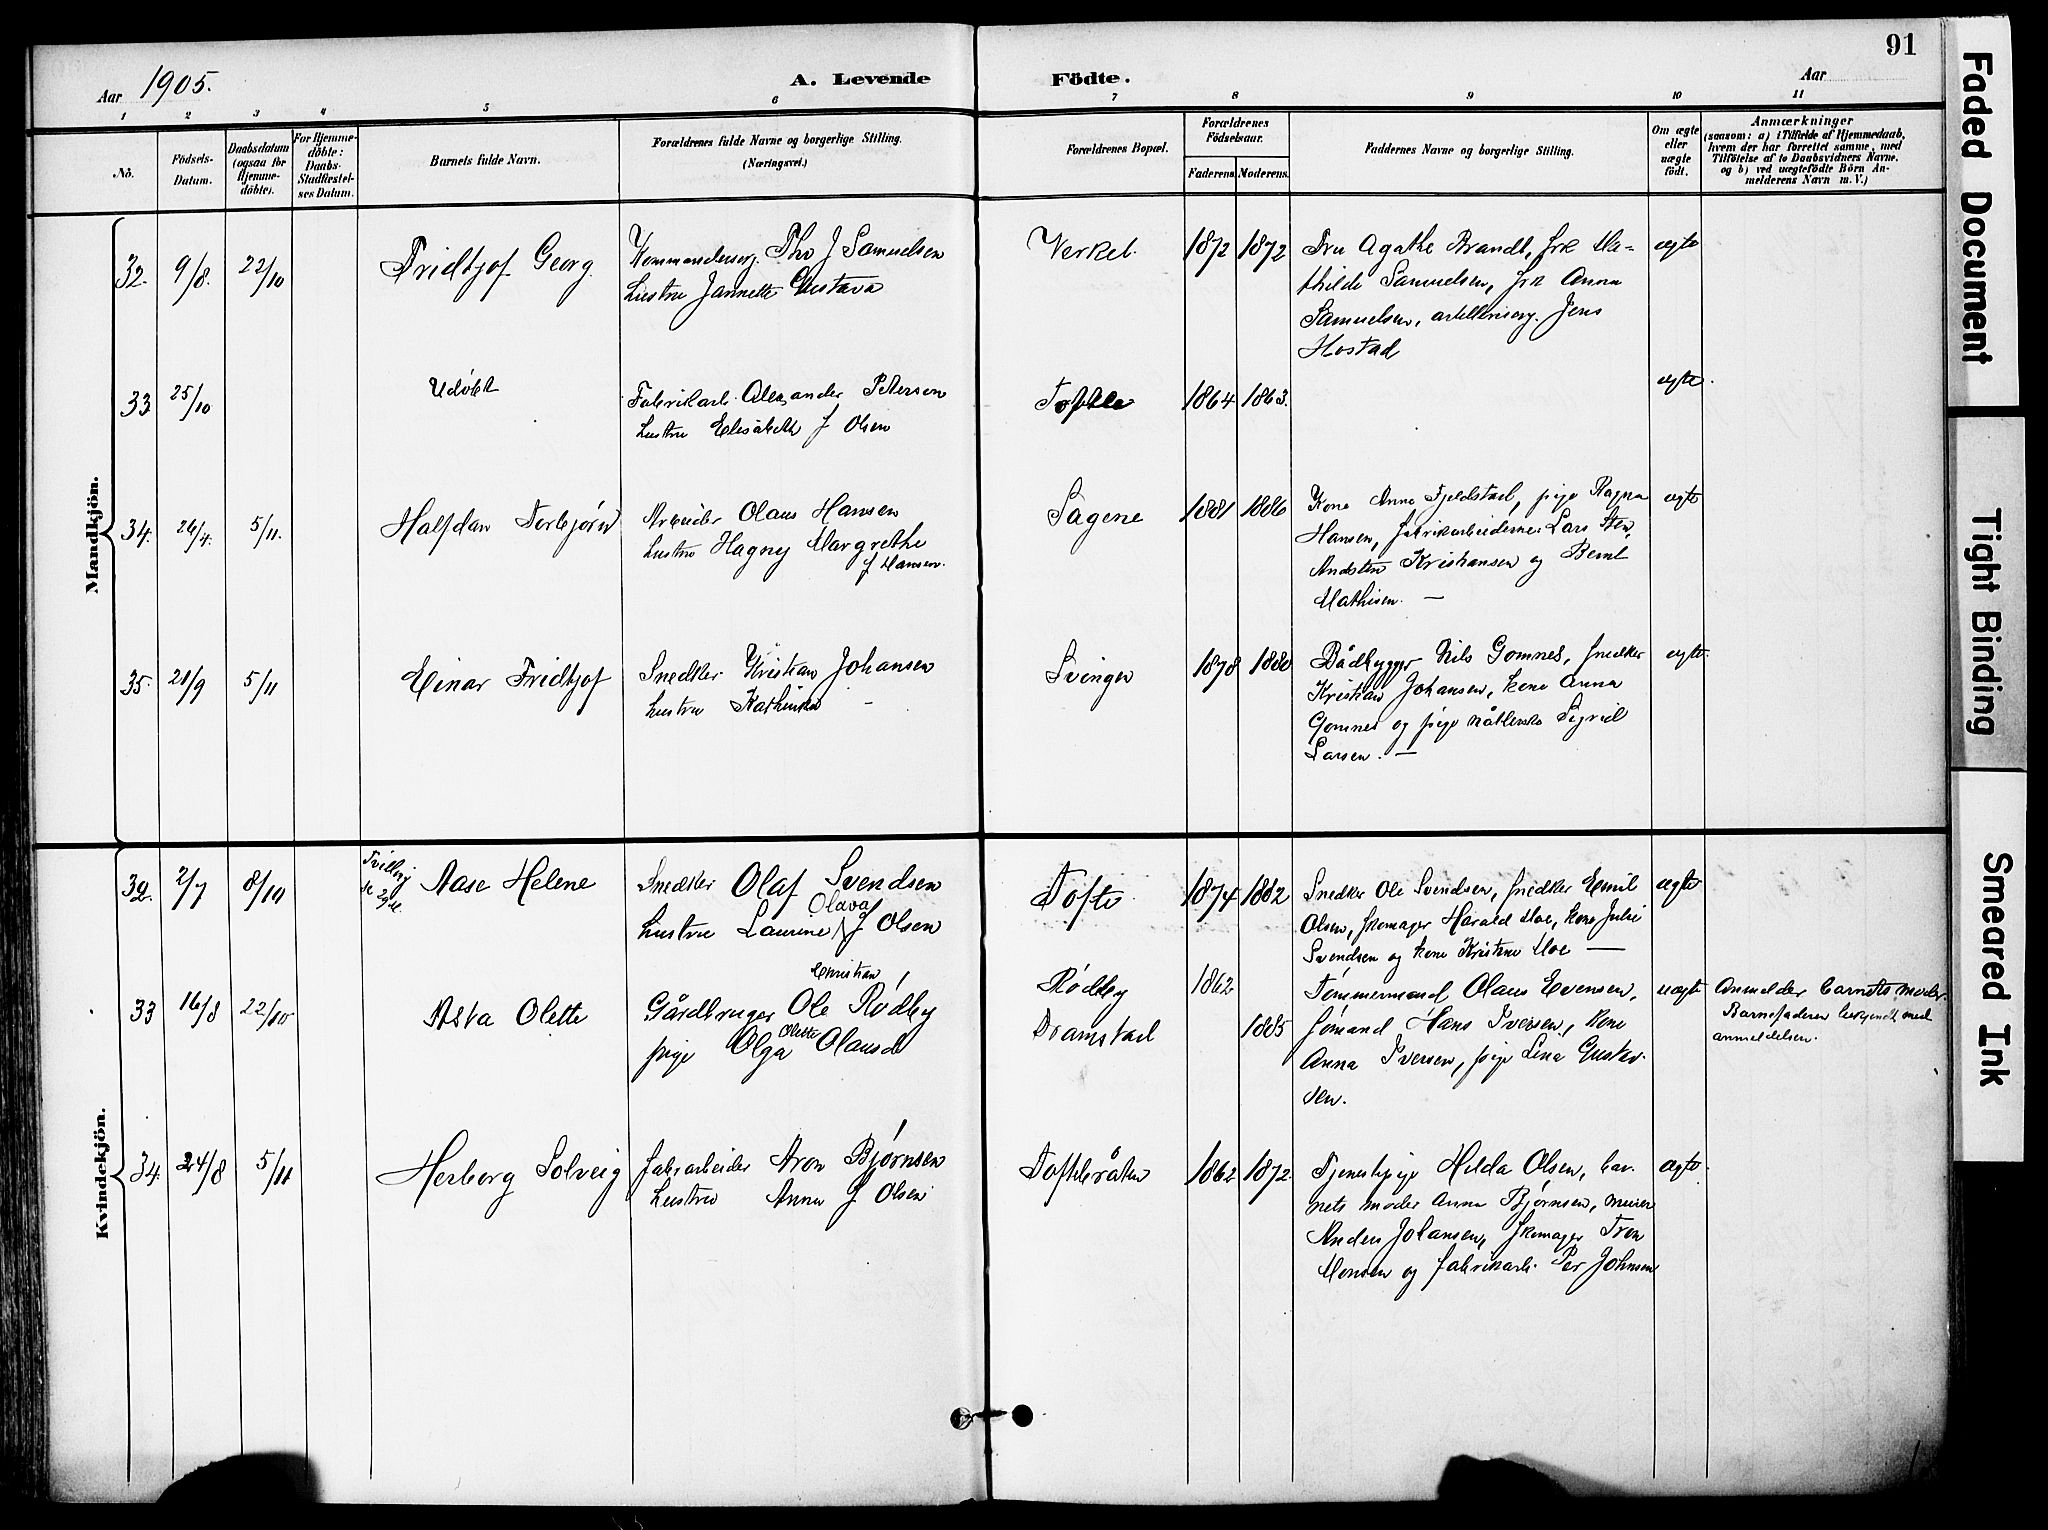 91
Aar 1905.
A. Levende Födte.
Aar
1 2 3 4 5 6 7 8 9 10 11
No.
Födsels-
Datum.
Daabsdatum
(ogsaa för
Hjemme-
döbte).
For Hjemme-
döbte:
Daabs-
Stadfæstel-
ses Datum.
Barnets fulde Navn.
Forældrenes fulde Navne og borgerlige Stilling.
(Næringsvei.)
Forældrenes Bopæl.
Forældrenes
Födselsaar.
Faderens. Moderens.
Faddernes Navne og borgerlige Stilling.
Om ægte
eller
uægte
födt.
Anmærkninger
(saasom: a) i Tilfælde af Hjemmedaab,
hvem der har forrettet samme, med
Tilföielse af to Daabsvidners Navne.
og b) ved uægtefödte Börn An-
melderens Navn m. V.)
Mandkjön.
32. 9/8. 22/10 Fridtjof Georg
Kommandersrg. Tho J Samuelsen
hustru Jannette Gustava
Verket. 1872 1872
Fru Agathe Brandt, frk Ma-
thilde Samuelsen, frk Anna
Samuelsen, artellerisrg. Jens
Hostad
ægte
33 25/10 Udøbt
Fabrikarb. Alexander Petersen
hustru Elisabeth f Olsen
Tofte 1864 1863.
ægte.
34. 26/4. 5/11. Halfdan Torbjørn
Arbeider Olaus Hansen
hustru Hagny Margrethe
f Hansen.
Sagene 1881 1886
Kone Anne Fjeldstad, pige Ragna
Hansen, fabrikarbeiderne Lars
Kristiansen og Bernt
Mathisen. —
ægte
35. 21/9 5/11 Einar Fridtjof
Snedker Kristian Johansen
hustru Kathinka –
Svingen 1878 1880
Bådbygger Nils Gomnes, snedker
Kristian Johansen, kone Anna
Gomnes og pige Sigrid
Larsen. —
ægte.
Kvindekjön.
32. 2/7 8/10 Tvilling Aase Helene
Snedker Olaf Svendsen
Olava
hustru Laurine f Olsen
Tofte 1874 1882
Snedker Ole Svendsen, snedker Emil
Olsen, skomager Harald Moe, kone Julie
Svendsen og kone Kristine Moe —
ægte
33 16/8 22/10 Asta Olette
Christian
Gårdbruger Ole Rødby
Olette
pige Olga Olausd
Rødby 1862
Dramstad 1885
Tømmermand Olaus Evensen,
sømand Hans Iversen, kone
Anna Iversen, pige Lina Gustav-
sen.
uægte
Anmelder barnets moder.
Barnefaderen bekjendt med
anmeldelsen.
34. 24/8 5/11 Herborg Solveig
fabrarbeider Aron Bjørnsen
hustru Anna f Olsen
Tofteråsen 1862 1872.
Tjenestpige Hilda Olsen, bar-
nets moder Anna Bjørnsen, murer
Anders Johansen, skomager Tron
Monsen og fabrikarb. Per Johnsen
ægte.
Faded Document
Tight Binding
Smeared Ink